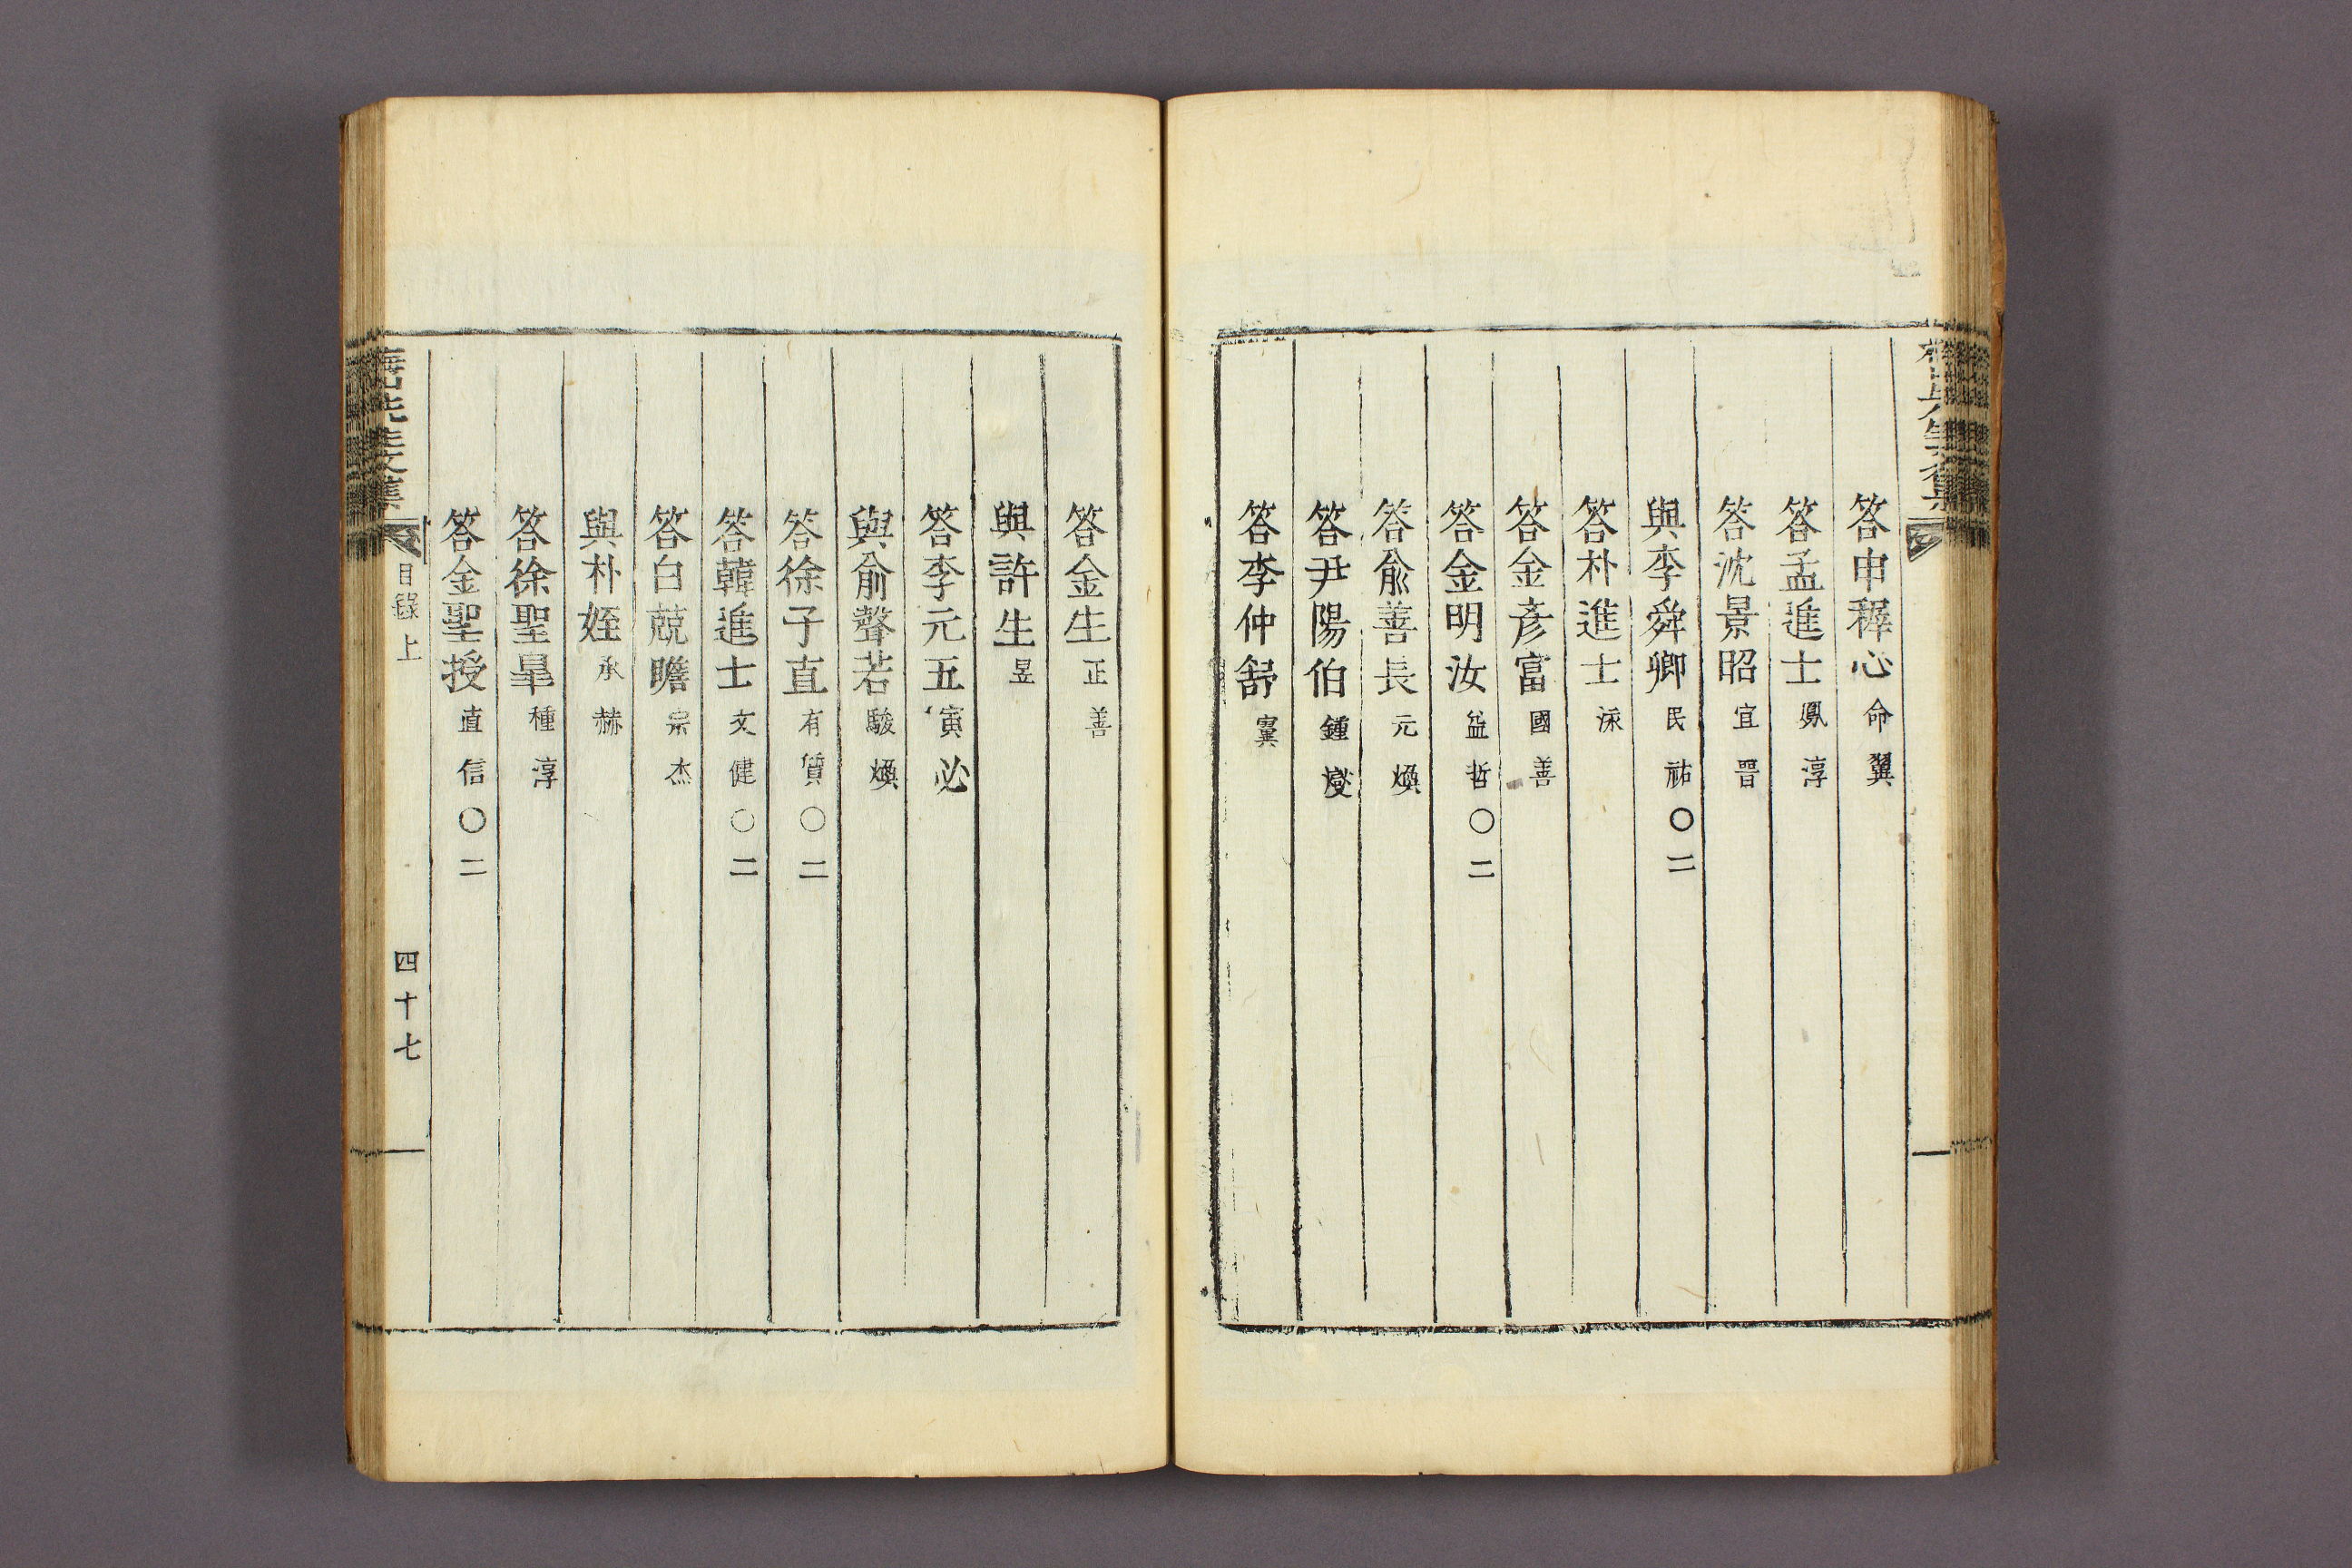 答申穉心命翼
答孟進士鳳淳
答沈景昭宜晋
與李舜卿民祐〇二
答朴進士洙
答金彥富國善
答金明汝益哲〇二
答兪善長元煥
答尹陽伯鍾燮
答李仲舒㝢
答金生正善
與許生昱
答李元五寅必
與兪聲若駿煥
答徐子直有質〇二
答韓進士文健〇二
答白兢瞻宗杰
與朴姪承赫
答徐聖臯種淳
答金聖授直信〇二
梅山先生文集
目錄上
四十七